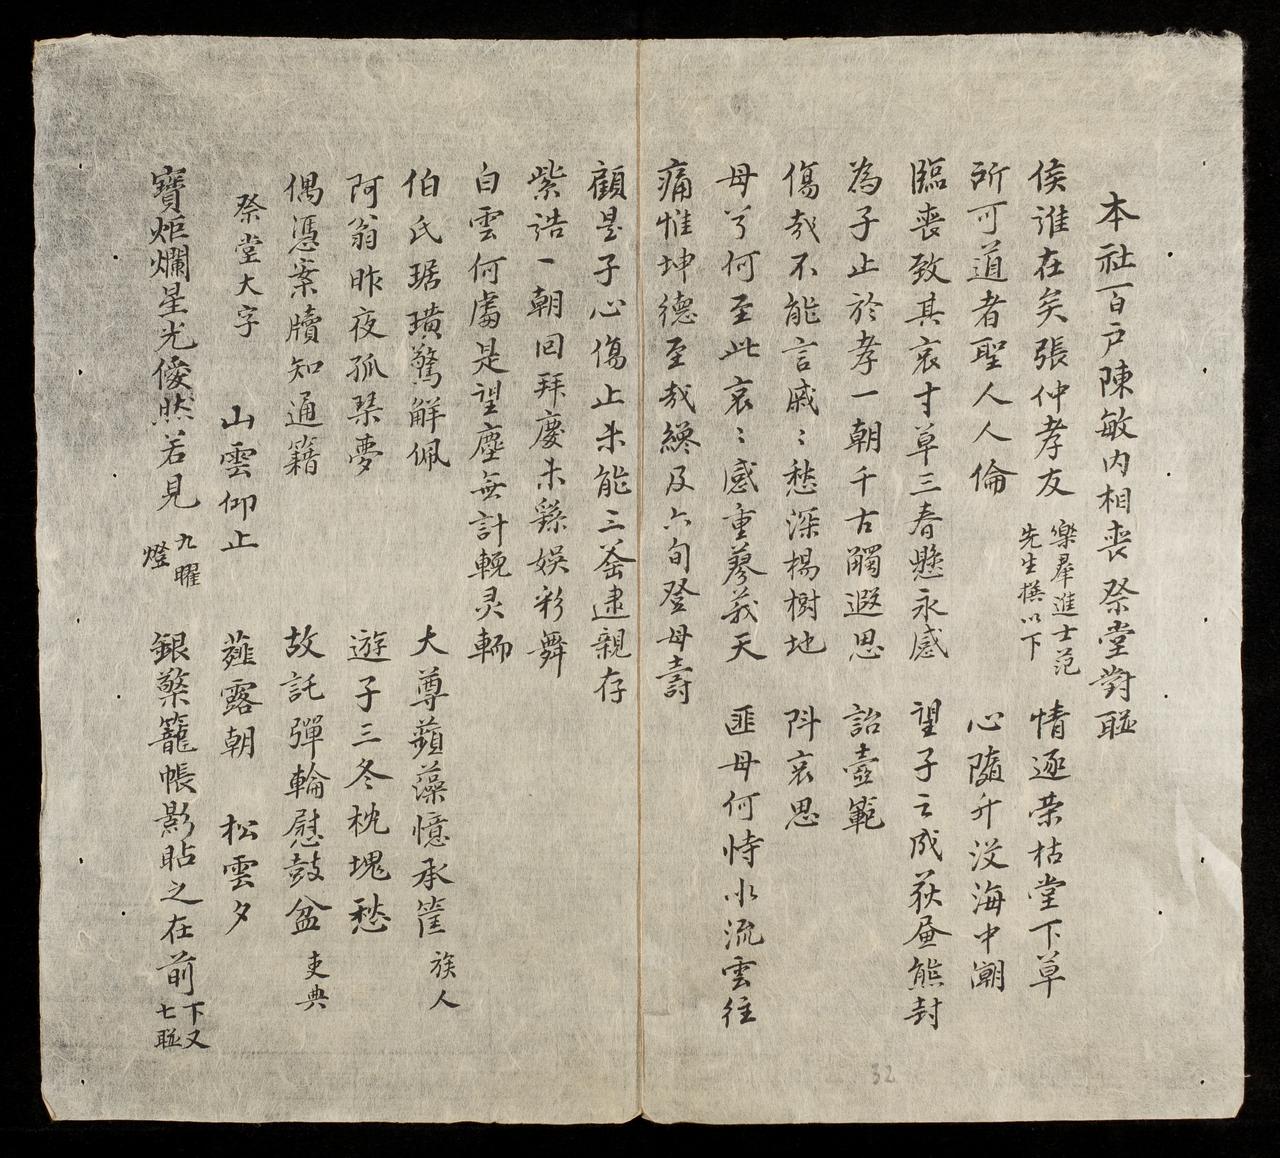 本社百戶陳敏內相丧祭堂對聯
侯誰在矣張仲孝友 樂羣進士范先生撰以下 情逐荣枯堂下草
所可道者聖人人倫 心隨升没海中潮
臨丧致其哀寸草三春懸永感 望子之成荻晝熊封
為子止於孝一朝千古觸遐思 詒壼範
傷哉不能言戚〻愁深楊樹地 阧哀思
母兮何至此哀〻感重蓼莪天 匪母何恃水流雲往
痛惟坤德至哉纔及六旬登母壽
顧是子心傷止未能三釜逮親存
紫誥一朝回拜慶未繇娛彩舞
白雲何處是望塵無計輓灵輀
伯氏琚璜驚解佩 大尊蘋藻憶承筐 族人
阿翁昨夜孤琴夢 遊子三冬枕塊愁
偶憑案牘知通籍 故託彈輪慰鼓盆 吏典
祭堂大字 山雲仰止 薤露朝 松雲夕
寶炬爛星光僾然若見 九曜燈 銀檠籠帳影貼之在前 下又七聯
32